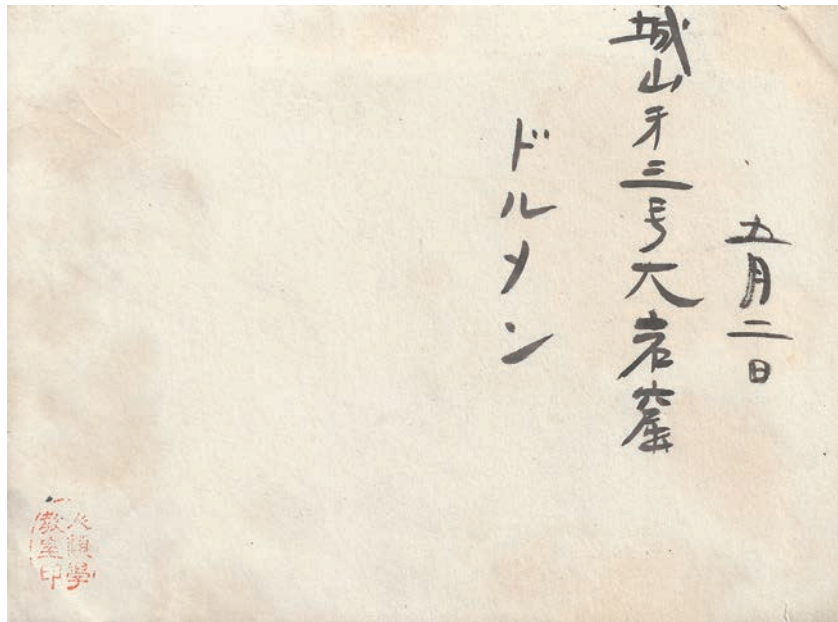 五月二日
城山才三号大岩窟
ドルメン
人類学
教室印